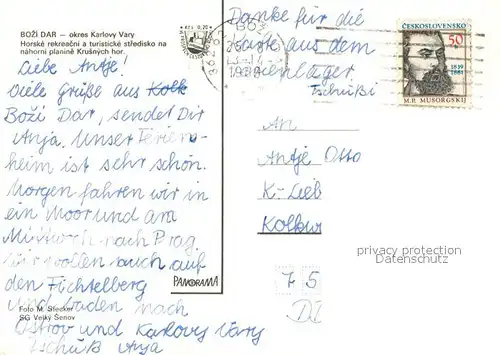 BOŽÍ DAR – okres Karlovy Vary
Horské rekreační a turistické středisko na
náhorní planině Krušných hor.
Liebe Antje!
Viele Grüße aus Kolk
Boží Dar, sendet Dir
Anja. Unser Ferien-
heim ist sehr schön.
Morgen fahren wir in
ein Moor und am
Mittwoch nach Prag.
Wir wollen auch auf
den Fichtelberg
und baden nach
Ostrov und Karlovy Vary
Tschüß Anja
Foto M. Stecker
SG Velký Šenov
PANORAMA
Danke für die
Karte aus dem
Ferienlager
Tschüßi
ČESKOSLOVENSKO
50
1839
1881
M.P. MUSORGSKIJ
An
Antje Otto
K-Lieb
Kolkw
privacy protection
Datenschutz
75
DI